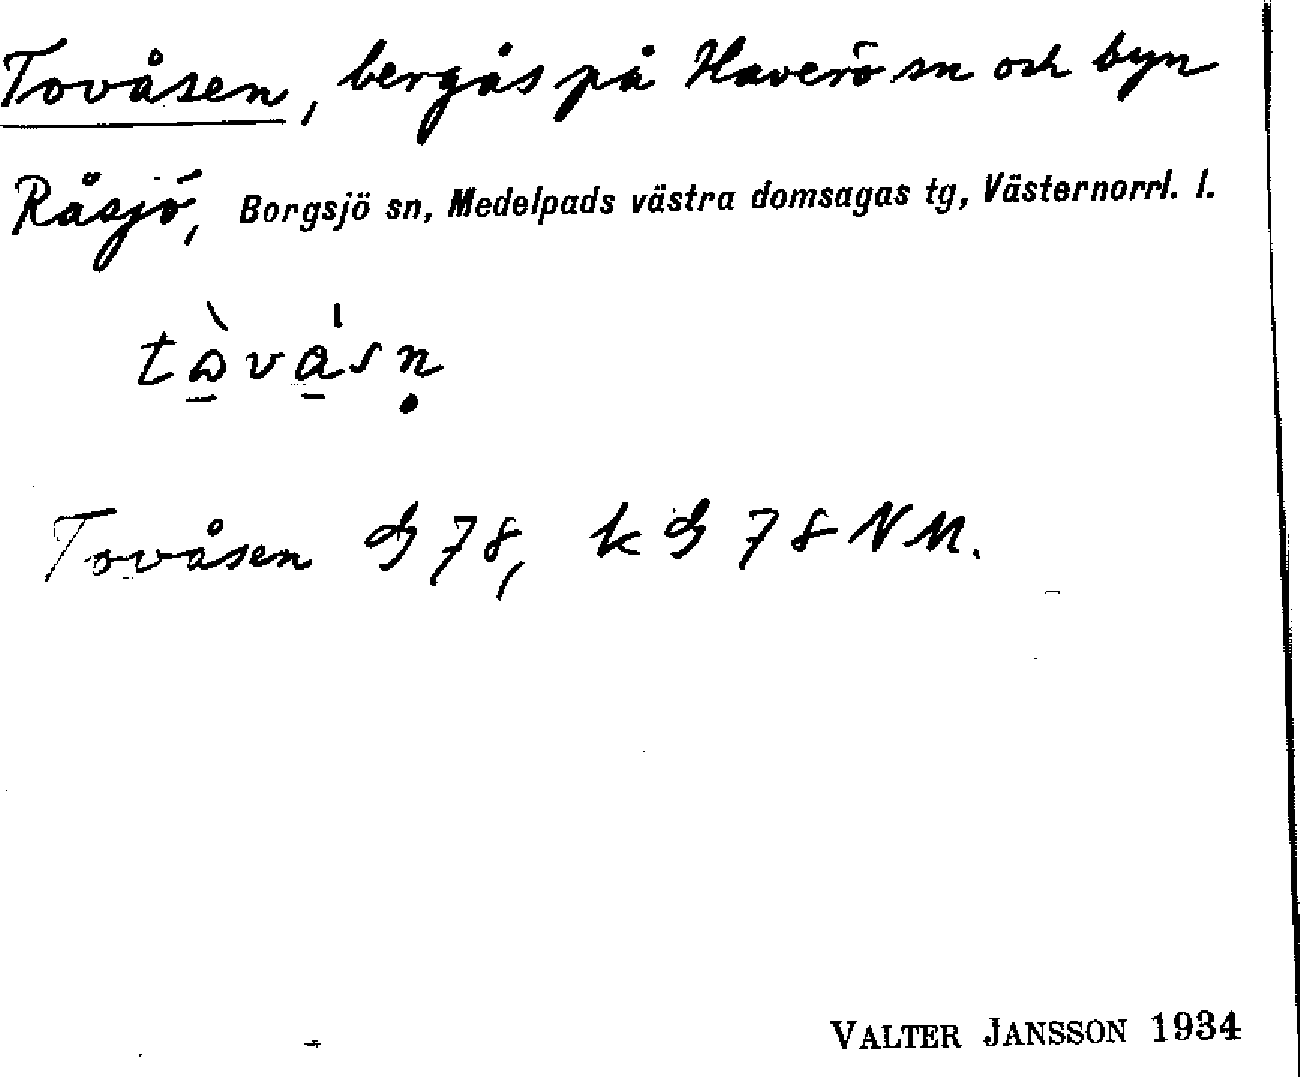 Tovåsen, bergås på Haverö sn och byn
Råsjö, Borgsjö sn, Medelpads västra domsagas tg, Västernorrl. l.
Tovåsen G 78, k G 78 NM.
VALTER JANSSON 1934